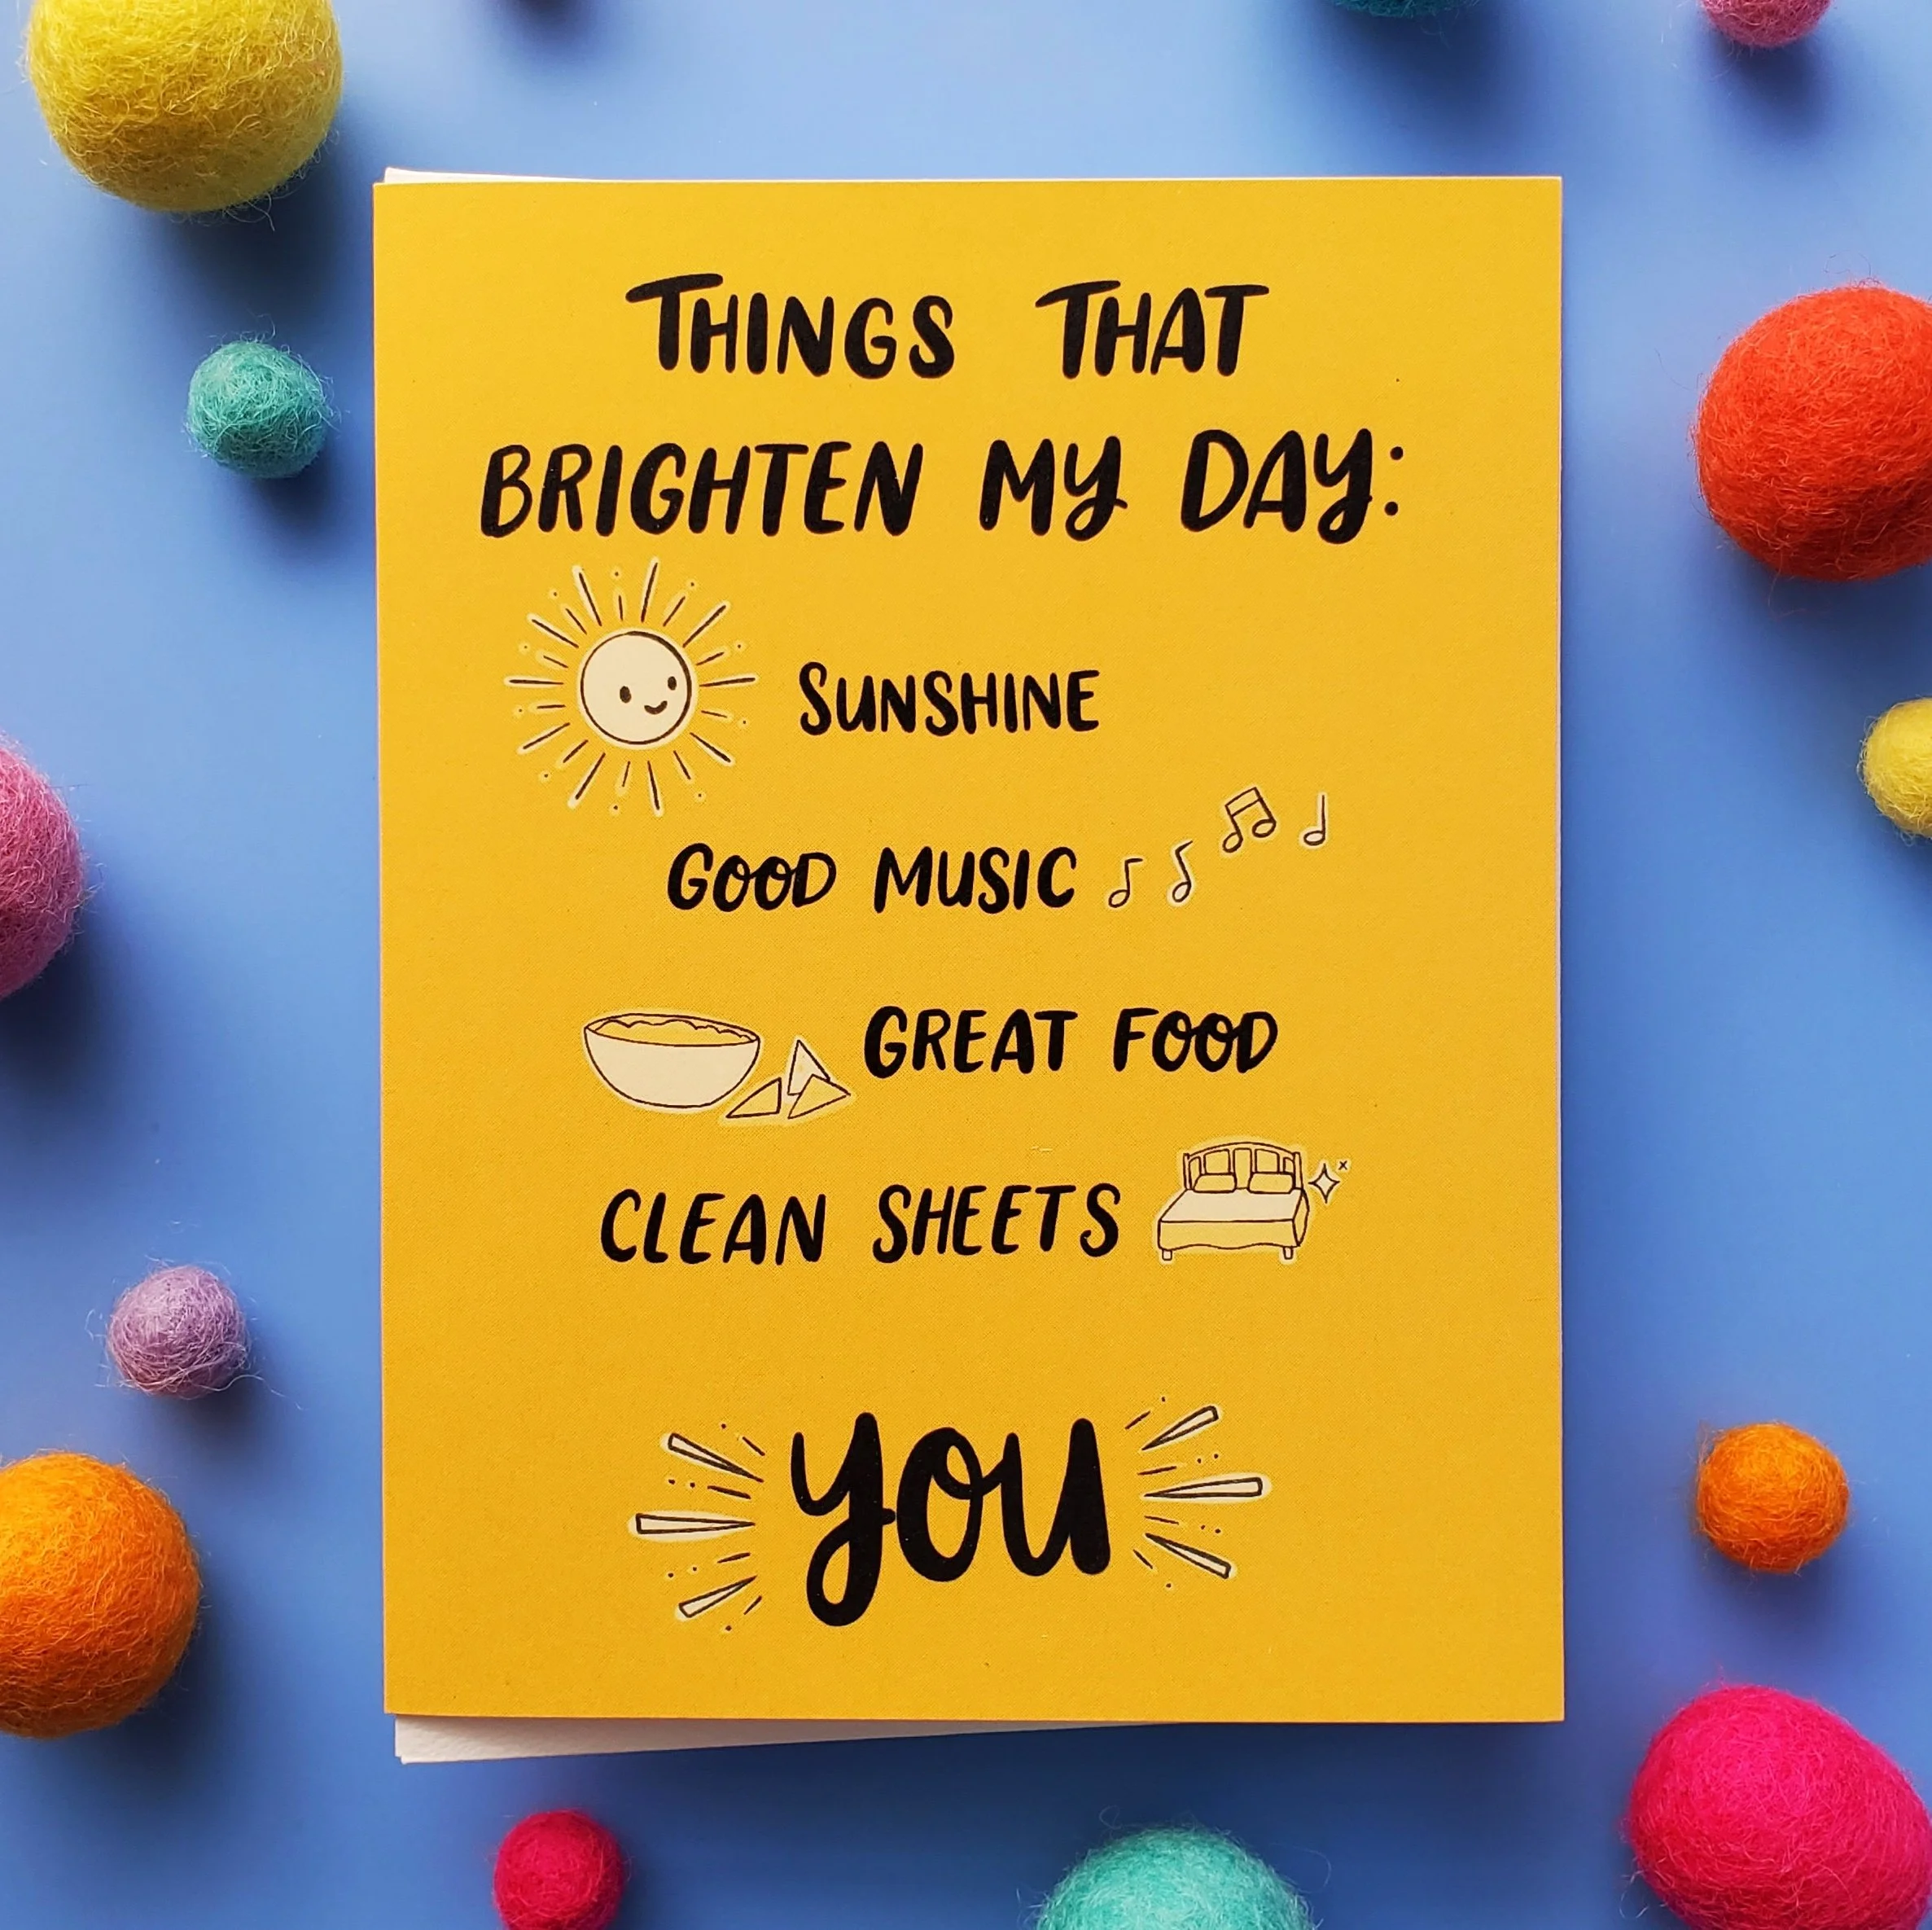 THINGS THAT
BRIGHTEN MY DAY:
SUNSHINE
GOOD MUSIC
GREAT FOOD
CLEAN SHEETS
YOU